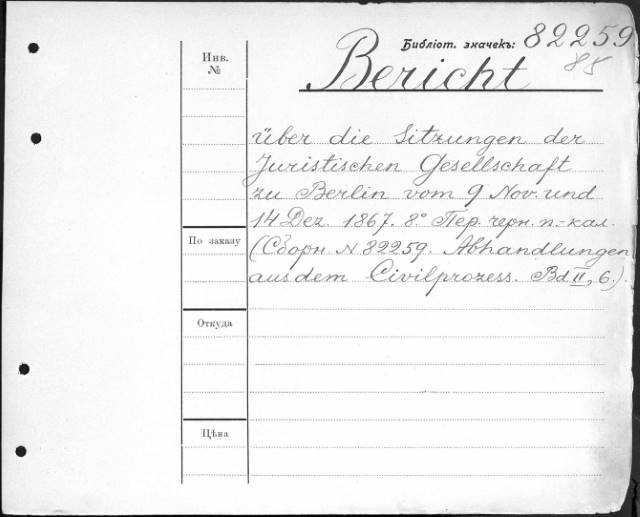 Библіот. значекъ: 82259
88
Инв.
№
Bericht
über die Sitzungen der
Juristischen Gesellschaft
zu Berlin vom 9 Nov. und
14 Dez. 1867. 8° Пер. черн. п.-кал.
По заказу
(Сборн. N 82259. Abhandlungen
aus dem Civilprozess. Bd II, 6.).
Откуда
Цѣна